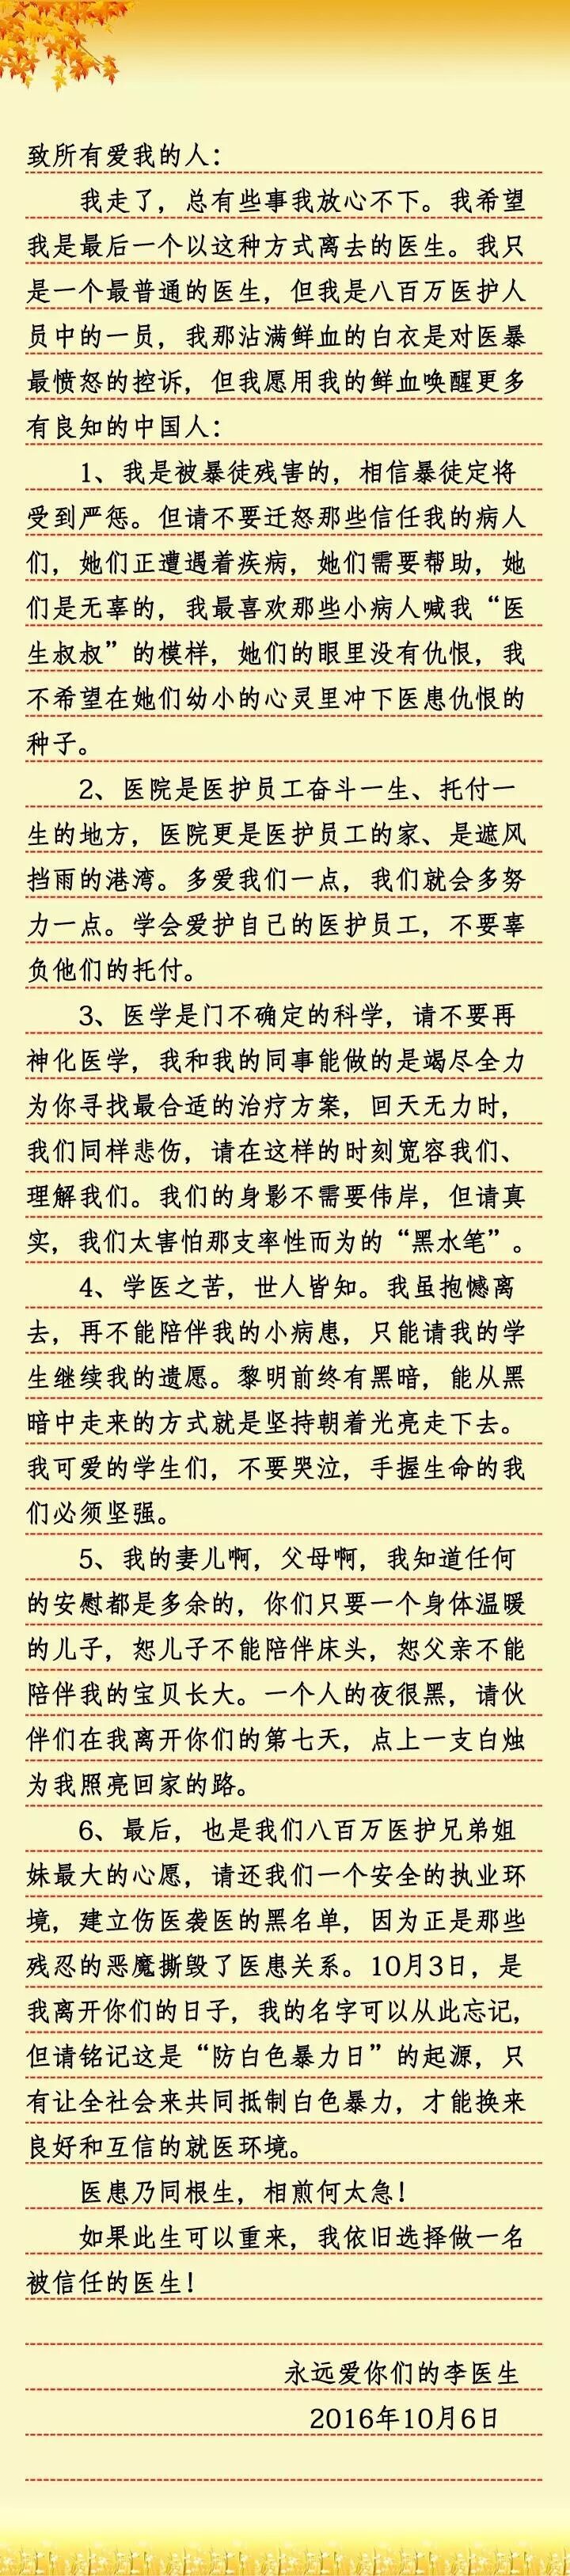 致所有爱我的人：
我走了，总有些事我放心不下。我希望
我是最后一个以这种方式离去的医生。我只
是一个最普通的医生，但我是八百万医护人
员中的一员，我那沾满鲜血的白衣是对医暴
最愤怒的控诉，但我愿用我的鲜血唤醒更多
有良知的中国人：
1、我是被暴徒残害的，相信暴徒定将
受到严惩。但请不要迁怒那些信任我的病人
们，她们正遭遇着疾病，她们需要帮助，她
们是无辜的，我最喜欢那些小病人喊我“医
生叔叔”的模样，她们的眼里没有仇恨，我
不希望在她们幼小的心灵里冲下医患仇恨的
种子。
2、医院是医护员工奋斗一生、托付一
生的地方，医院更是医护员工的家、是遮风
挡雨的港湾。多爱我们一点，我们就会多努
力一点。学会爱护自己的医护员工，不要辜
负他们的托付。
3、医学是门不确定的科学，请不要再
神化医学，我和我的同事能做的是竭尽全力
为你寻找最合适的治疗方案，回天无力时，
我们同样悲伤，请在这样的时刻宽容我们、
理解我们。我们的身影不需要伟岸，但请真
实，我们太害怕那支率性而为的“黑水笔”。
4、学医之苦，世人皆知。我虽抱憾离
去，再不能陪伴我的小病患，只能请我的学
生继续我的遗愿。黎明前终有黑暗，能从黑
暗中走来的方式就是坚持朝着光亮走下去。
我可爱的学生们，不要哭泣，手握生命的我
们必须坚强。
5、我的妻儿啊，父母啊，我知道任何
的安慰都是多余的，你们只要一个身体温暖
的儿子，恕儿子不能陪伴床头，恕父亲不能
陪伴我的宝贝长大。一个人的夜很黑，请伙
伴们在我离开你们的第七天，点上一支白烛
为我照亮回家的路。
6、最后，也是我们八百万医护兄弟姐
妹最大的心愿，请还我们一个安全的执业环
境，建立伤医袭医的黑名单，因为正是那些
残忍的恶魔撕毁了医患关系。10月3日，是
我离开你们的日子，我的名字可以从此忘记，
但请铭记这是“防白色暴力日”的起源，只
有让全社会来共同抵制白色暴力，才能换来
良好和互信的就医环境。
医患乃同根生，相煎何太急！
如果此生可以重来，我依旧选择做一名
被信任的医生！
永远爱你们的李医生
2016年10月6日